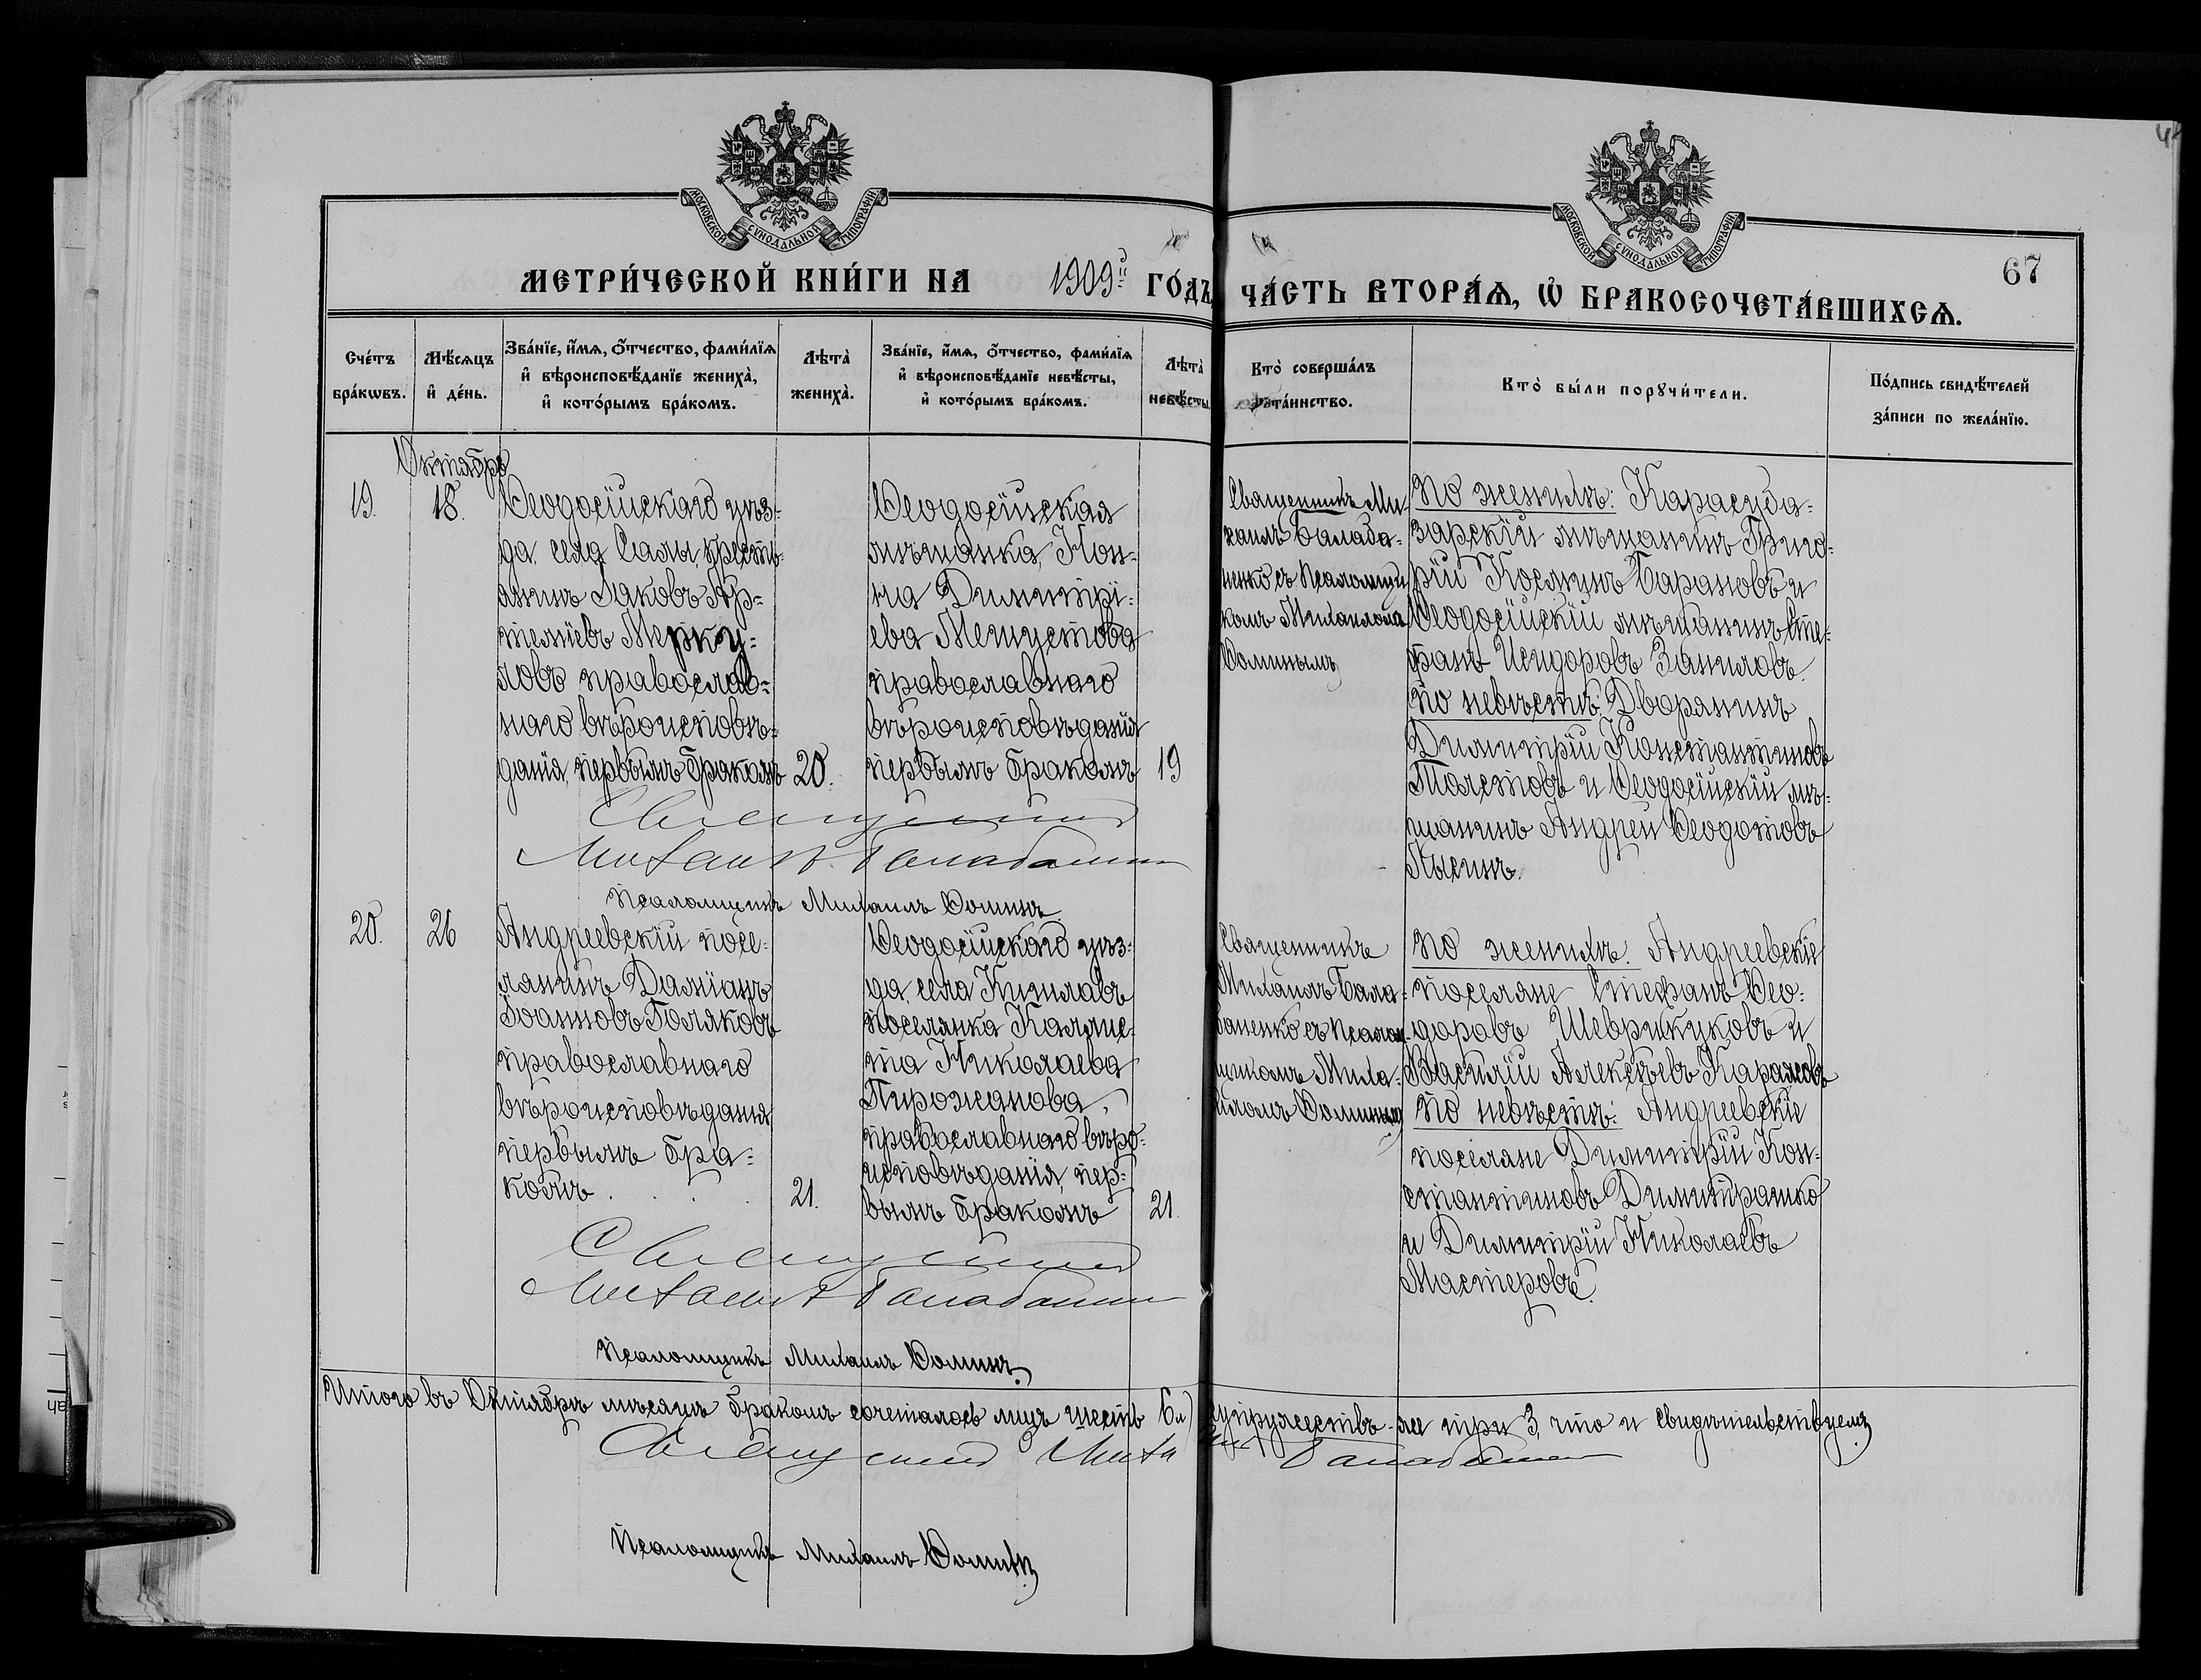 МОСКОВСКОЙ СѴНОДАЛЬНОЙ ТИПОГРАФІИ
МОСКОВСКОЙ СѴНОДАЛЬНОЙ ТИПОГРАФІИ
МЕТРИ́ЧЕСКОЙ КНИ́ГИ НА 1909й ГО́ДЪ
ЧА́СТЬ ВТОРА́Ѧ, Ѡ҆ БРАКОСОЧЕТА́ВШИХСѦ.
67
Сче́тъ
бра́кѡвъ.
Мѣ́сѧцъ
и҆ де́нь.
Зва́нїе, и҆́мѧ, ѻ҆́тчество, фами́лїѧ
и҆ вѣроисповѣ́данїе жениха̀,
и҆ кото́рымъ бра́комъ.
Лѣта̀
жениха̀.
Зва́нїе, и҆́мѧ, ѻ҆́тчество, фами́лїѧ
и҆ вѣроисповѣ́данїе невѣ́сты,
и҆ кото́рымъ бра́комъ.
Лѣта̀
невѣ́сты.
Кто̀ соверша́лъ
та́инство.
Кто̀ бы́ли порꙋчи́тели.
По́дпись свидѣ́телей
за́писи по жела́нїю.
Октябрь
19.
18.
Ѳеодосійскаго уѣз-
да, села Салы, кресть-
янинъ Іаковъ Ар-
темíевъ Мерку-
ловъ православ-
наго вѣроисповѣ-
данія, первымъ бракомъ
20.
Ѳеодосійская
мѣщанка,
Димитрі-
ева
православнаго
вѣроисповѣданія
первымъ бракомъ
19
Священникъ Ми-
хаилъ Балаба-
ненко съ Псаломщи
комъ Михаиломъ
Ѳоминымъ
По женихѣ: Карасуба-
зарскій мѣщанинъ Григо-
рій Косминъ Барановъ и
Ѳеодосійскій мѣщанинъ Сте-
фанъ Исидоровъ
По невѣстѣ: Дворянинъ
Димитрій Константиновъ
Толстовъ и Ѳеодосійскій мѣ-
щанинъ Андрей Ѳеодотовъ
Лысинъ.
Священникъ
Михаилъ Балабаненко
Псаломщикъ Михаилъ Ѳоминъ
20.
26
Андреевскій посе-
лянинъ Даміанъ
Іоанновъ Голяковъ
православнаго
вѣроисповѣданія
первымъ бра-
комъ . . . .
21.
Ѳеодосійскаго уѣз-
да, села Кишлавъ
поселянка Каллис-
та Николаева
Пирожанова,
православнаго вѣро-
исповѣданія, пер-
вымъ бракомъ
21.
Священникъ
Михаилъ Бала-
баненко съ Псалом-
щикомъ Миха-
иломъ Ѳоминымъ
По женихѣ: Андреевскіе
поселяне Стефанъ Ѳео-
доровъ Шеврикуковъ и
Василій Алексѣевъ
По невѣстѣ: Андреевскіе
поселяне Димитрій Кон-
стантиновъ Димитрашко
и Димитрій Николаевъ
Мастеровъ.
Священникъ
Михаилъ Балабаненко
Псаломщикъ Михаилъ Ѳоминъ.
Итого въ Октябрѣ мѣсяцѣ бракомъ сочеталось лицъ шесть 6 супружествъ-же три 3, что и свидѣтельствуемъ
Священникъ Михаилъ Балабаненко
Псаломщикъ Михаилъ Ѳоминъ